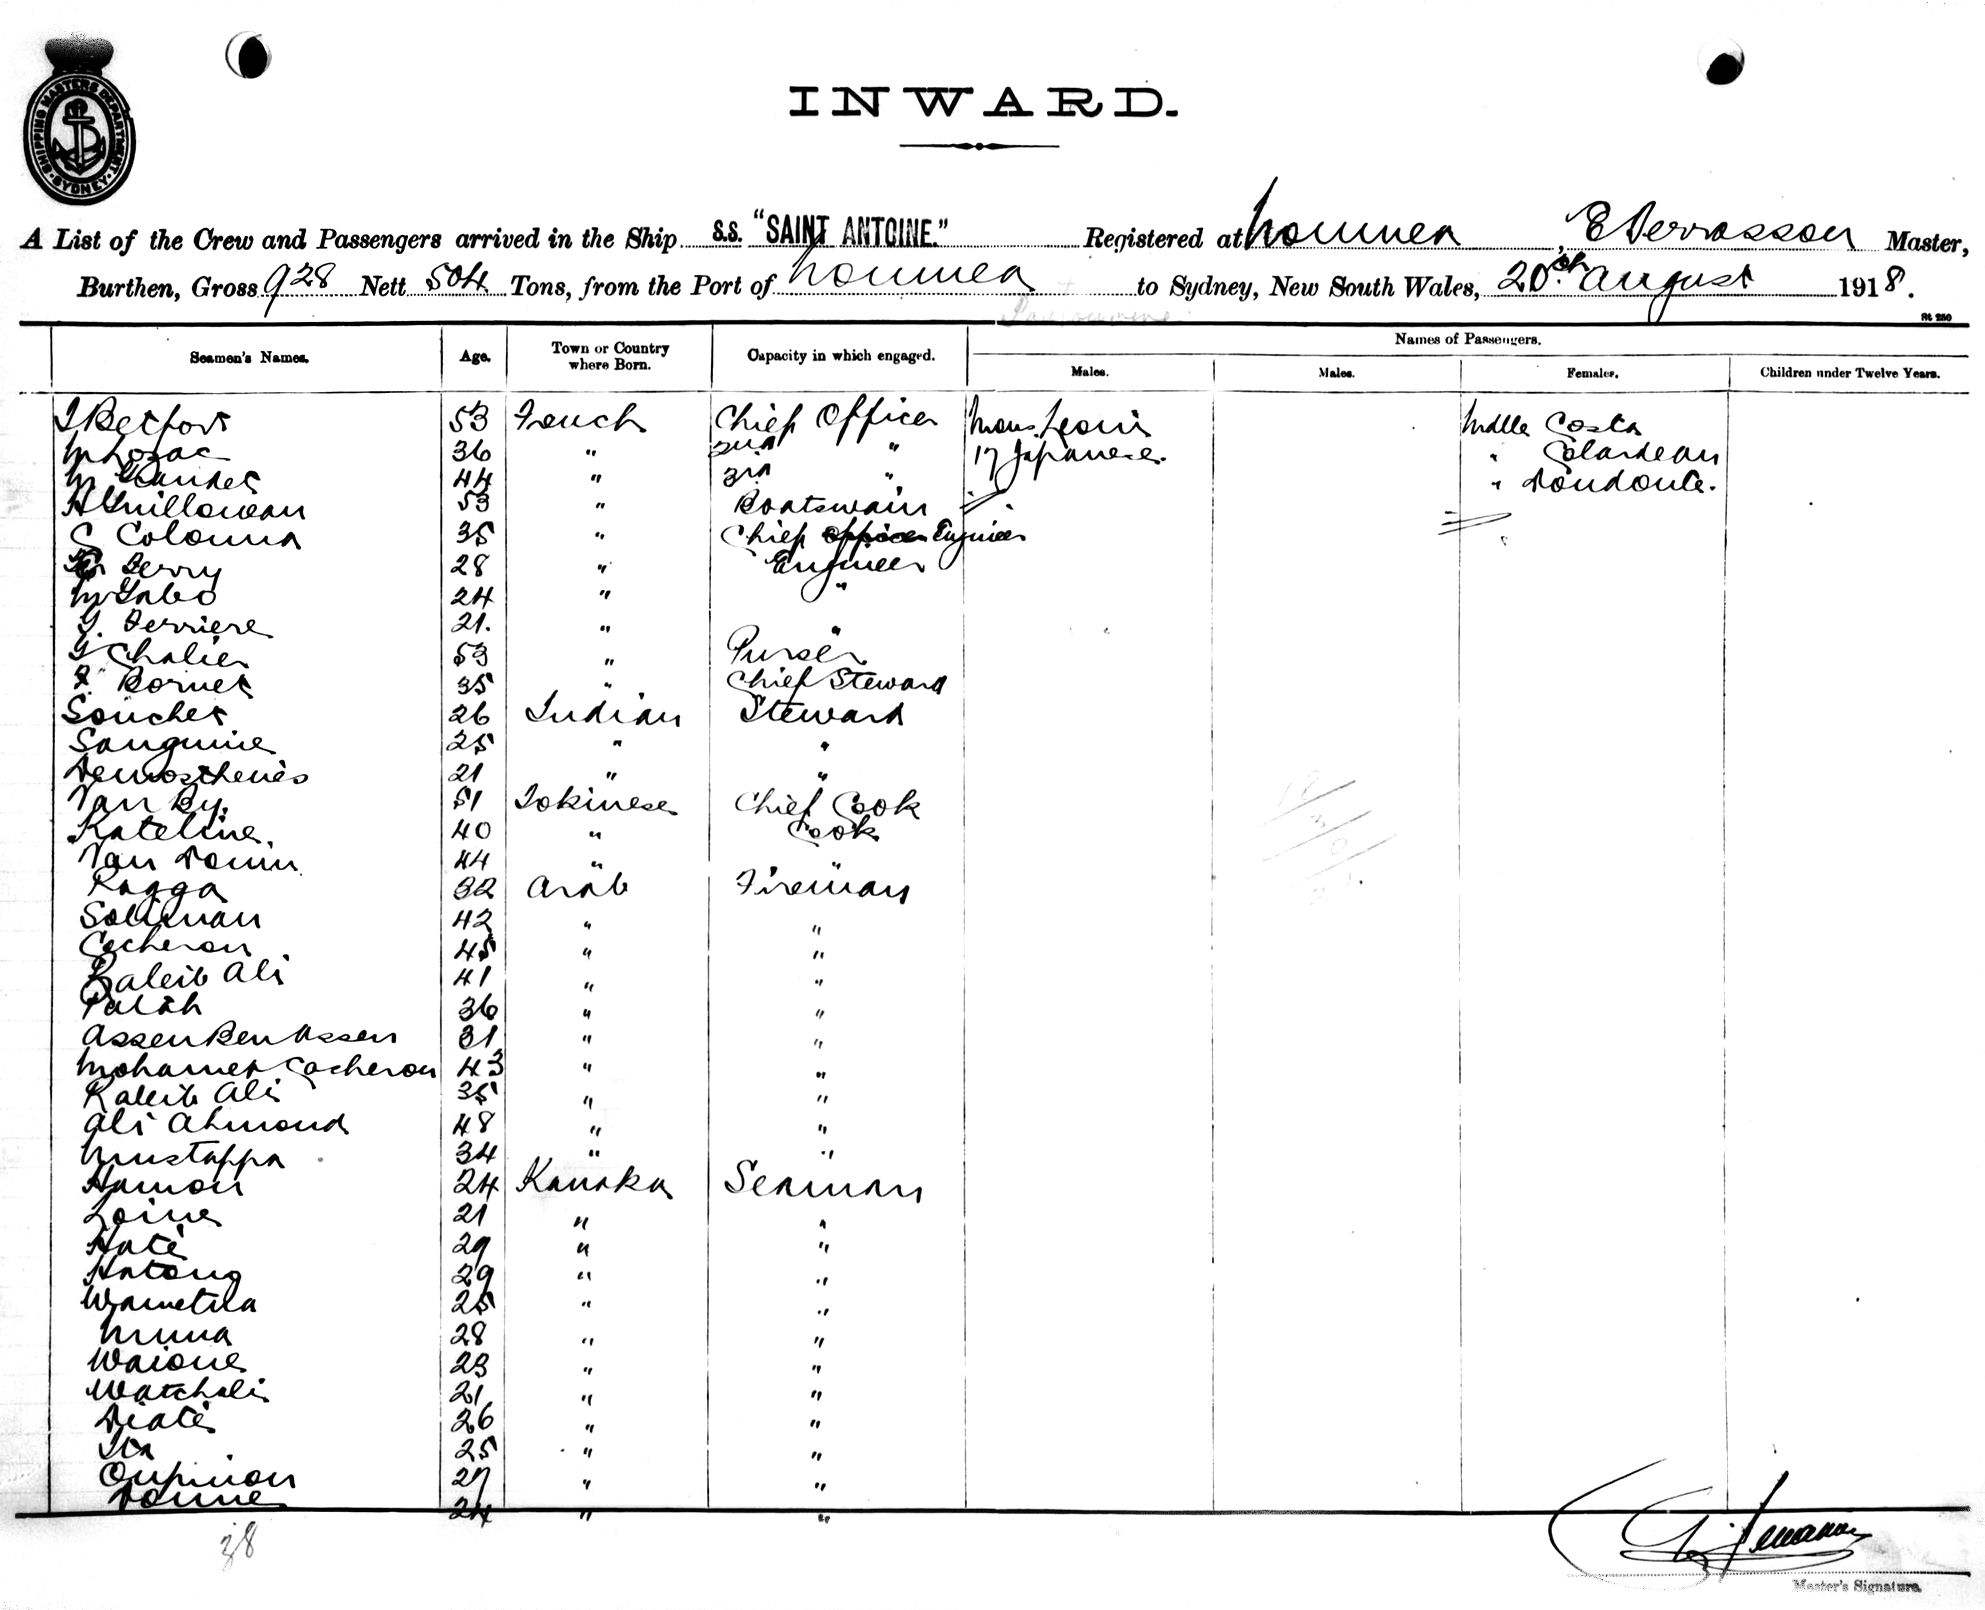 SHIPPING MASTERS DEPARTMENT · SYDNEY ·
INWARD.
A List of the Crew and Passengers arrived in the Ship S.S. "SAINT ANTOINE." Registered at Noumea, E Terrasson Master,
Burthen, Gross 928 Nett 504 Tons, from the Port of Noumea to Sydney, New South Wales, 20th August 1918.
St 250
Seamen's Names. Age. Town or Country where Born. Capacity in which engaged. Names of Passengers.
Males. Males. Females. Children under Twelve Years.
53 French Chief Officer Mons Louis Mdlle Costa
36 " 2nd " 17 Japanese. "
44 " 3rd " "
H Guillowan 53 " Boatswain
C Colonna 35 " Chief Engineer
Berry 28 " Engineer
24 " "
G. Ferriere 21. " "
G Chalier 53 " Purser
Bornet 35 " Chief Steward
Souchet 26 Indian Steward
Sanguine 25 " "
Demosthenes 21 " "
Van Ky. 51 Tokinese Chief Cook
Kateline. 40 " Cook
Van 44 " "
Ragga 32 Arab Fireman
Soliman 42 " "
Cacheron 45 " "
Kaleib Ali 41 " "
Palah 36 " "
Assen Ben Assen 31 " "
Mohamet Cacheron 43 " "
Kaleib Ali 35 " "
Ali Ahmoud 48 " "
Mustappa 34 " "
Hamon 24 Kanaka Seaman
Loine 21 " "
Hate 29 " "
Hatong 29 " "
Wametila 25 " "
Muna 28 " "
Waione 23 " "
Watchali 21 " "
Diate 26 " "
Ita 25 " "
Oupinon 27 " "
24 " "
38
Master's Signature.